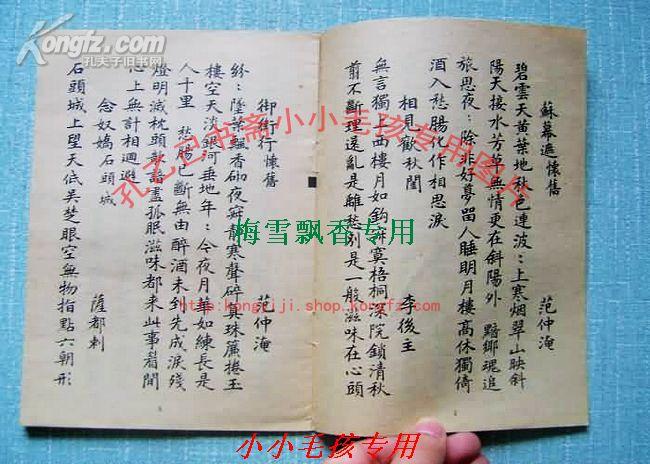 蘇幕遮懷舊 范仲淹
碧雲天黃葉地秋色連波：上寒烟翠山映斜
陽天接水芳草無情更在斜陽外 黯鄉魂追
旅思夜：除非好夢留人睡明月樓高休獨倚
酒入愁腸化作相思淚
相見歡秋閨 李後主
無言獨上西樓月如鈎寂寞梧桐深院鎖清秋
剪不斷理還亂是離愁別是一般滋味在心頭
御街行懷舊 范仲淹
紛：墜葉飄香砌夜寂靜寒聲碎真珠簾捲玉
樓空天淡銀河垂地年：今夜月華如練長是
人千里 愁腸已斷無由醉酒未到先成淚殘
燈明滅枕頭欹諳盡孤眠滋味都來此事眉間
心上無計相迴避
念奴嬌石頭城 薩都剌
石頭城上望天低吳楚眼空無物指點六朝形
Kongfz.com
孔夫子旧书网
孔乙己书斋小小毛孩专用图片
梅雪飘香专用
http://kongyiji.shop.kongfz.com/
小小毛孩专用